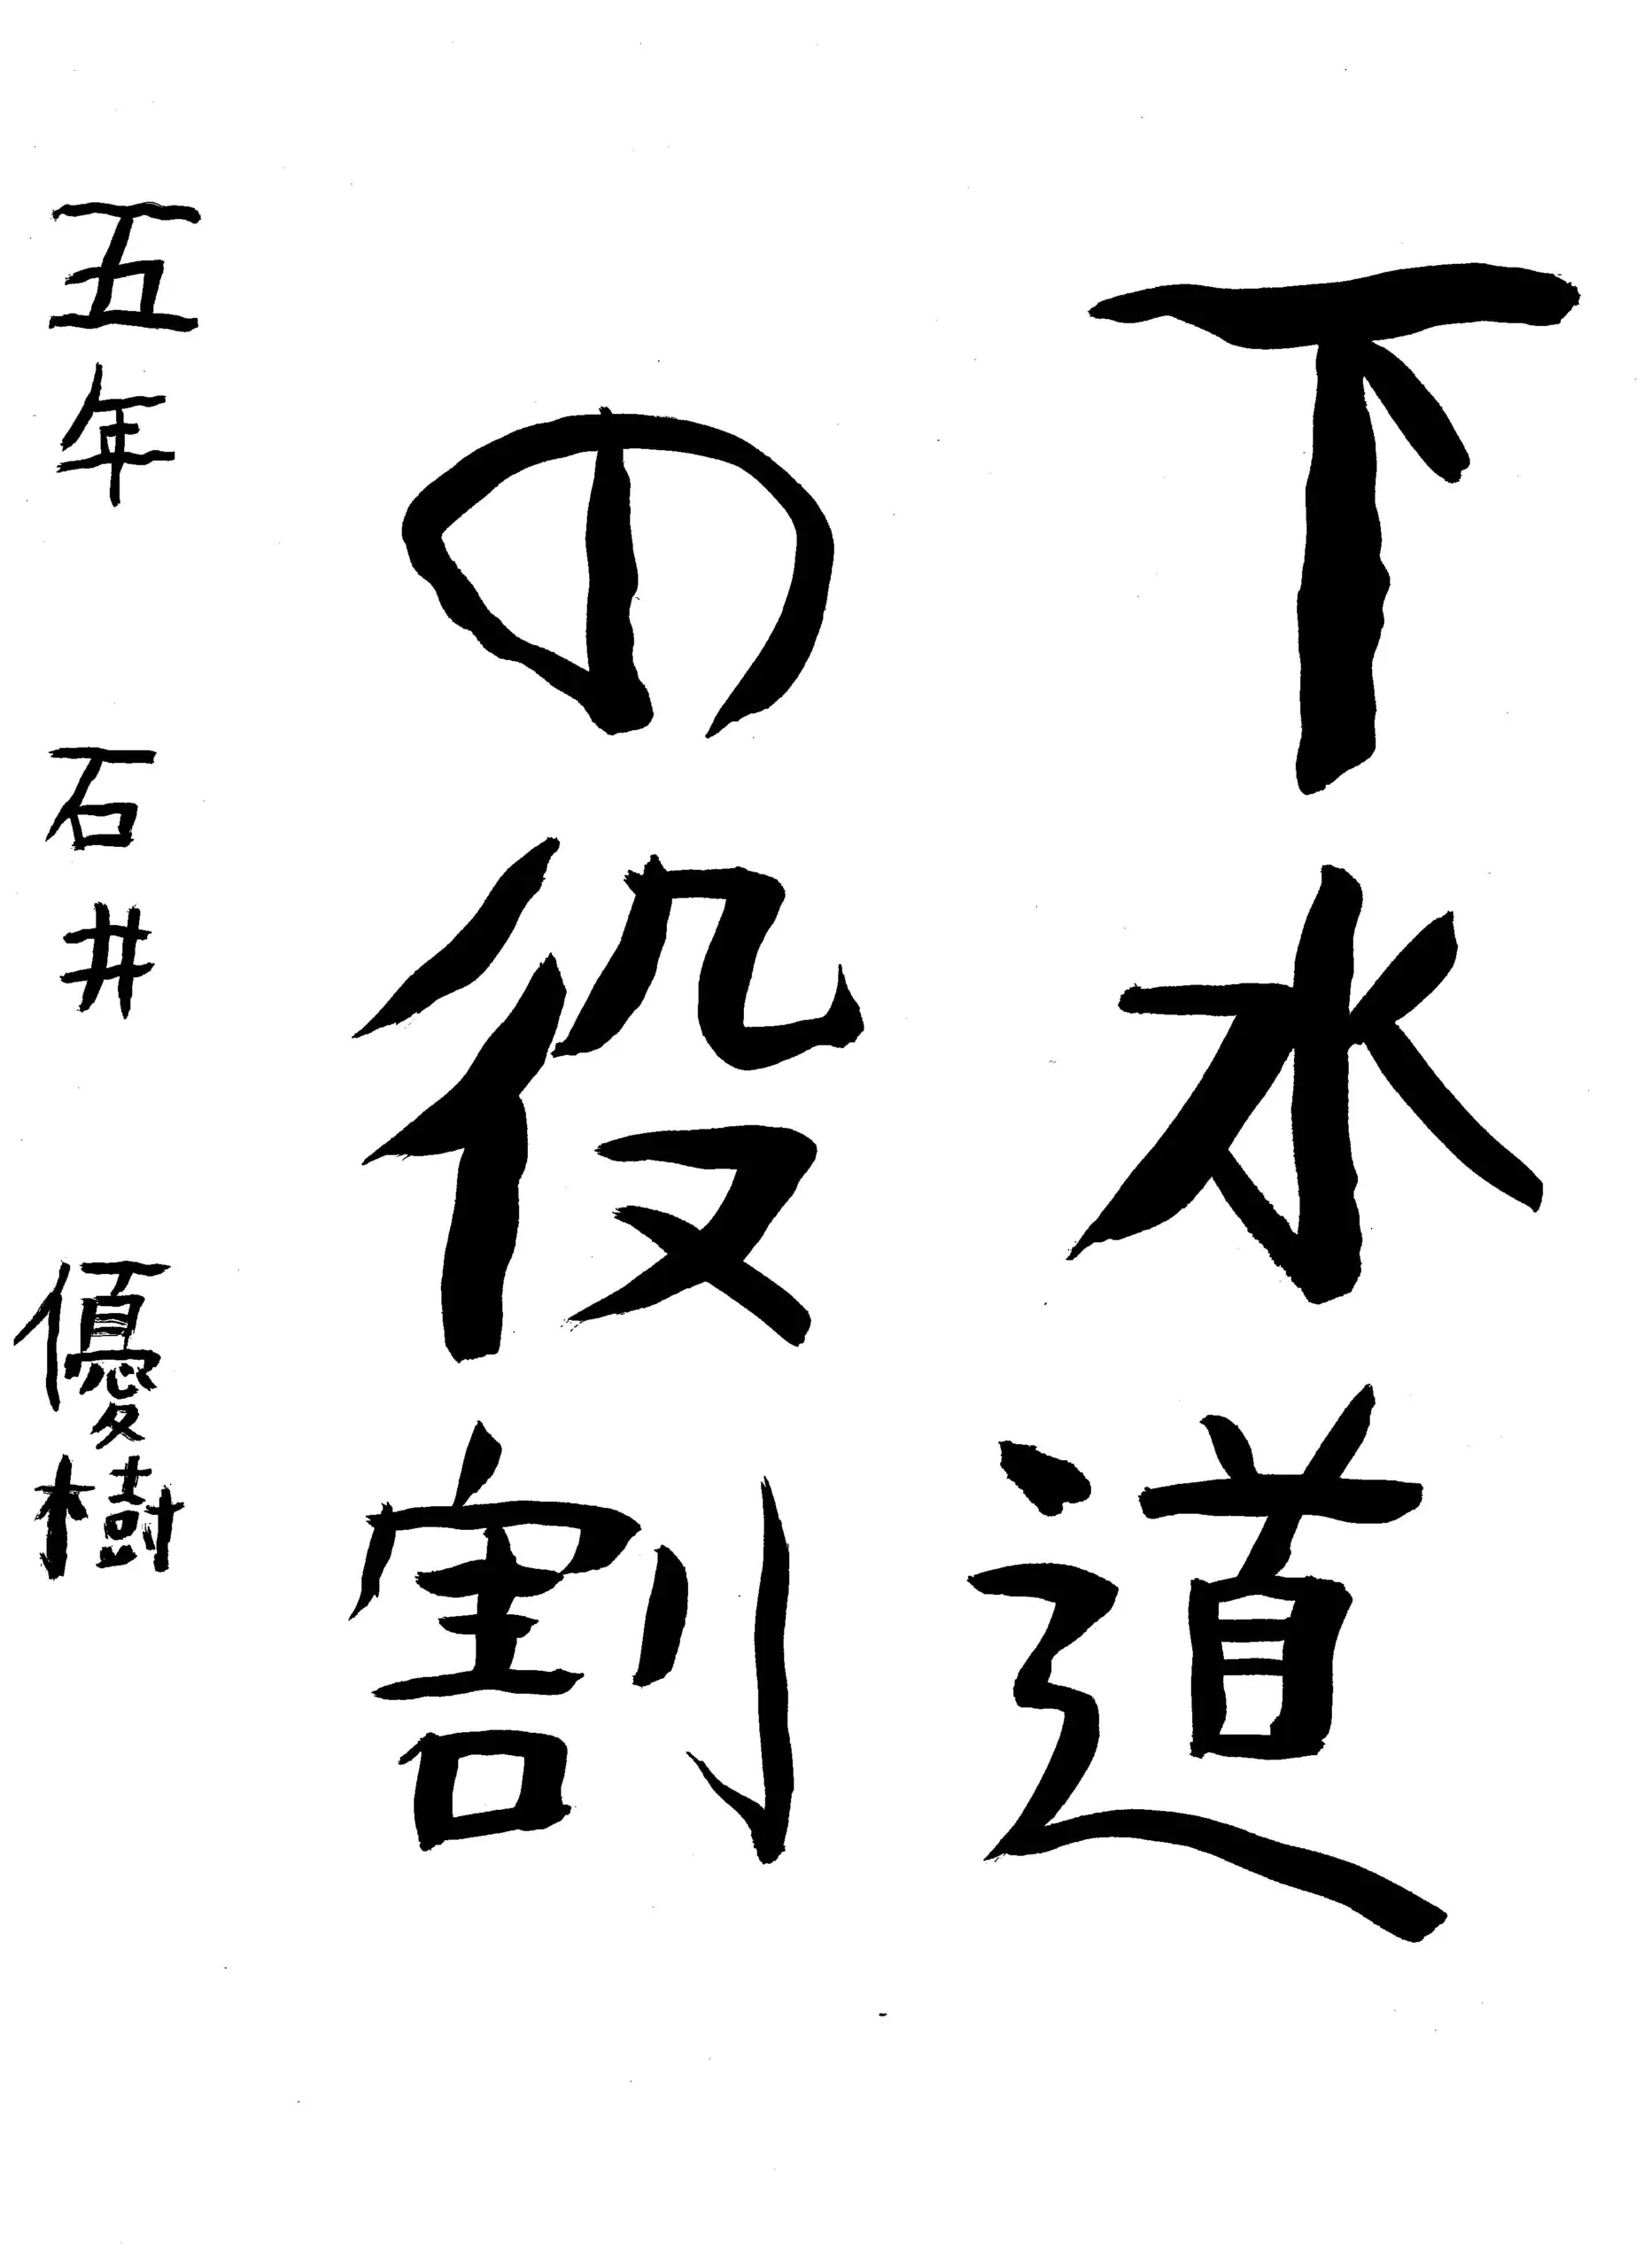 下水道
の役割
五年 石井 優樹